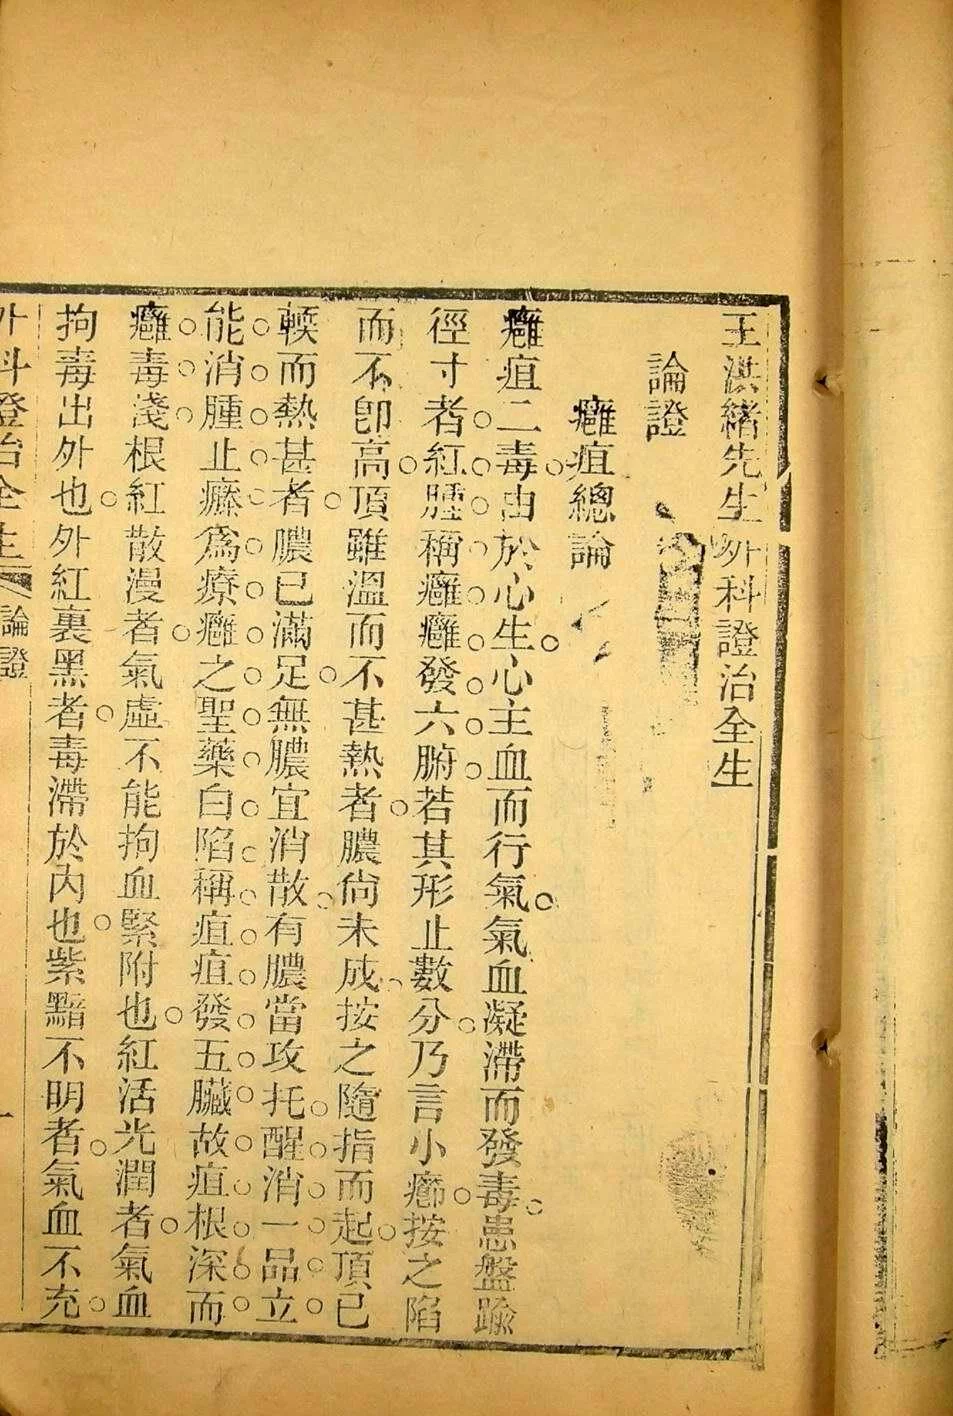 王洪緒先生外科證治全生
論證
癰疽總論
癰疽二毒由於心生心主血而行氣氣血凝滯而發毒患盤踰
徑寸者紅腫稱癰癰發六腑若其形止數分乃言小癤按之陷
而不卽高頂雖溫而不甚熱者膿尙未成按之隨指而起頂已
輭而熱甚者膿已滿足無膿宜消散有膿當攻托醒消一品立
能消腫止㾕爲療癰之聖藥白陷稱疽疽發五臟故疽根深而
癰毒淺根紅散漫者氣虛不能拘血緊附也紅活光潤者氣血
拘毒出外也外紅裏黑者毒滯於內也紫黯不明者氣血不充
外科證治全生 論證 一